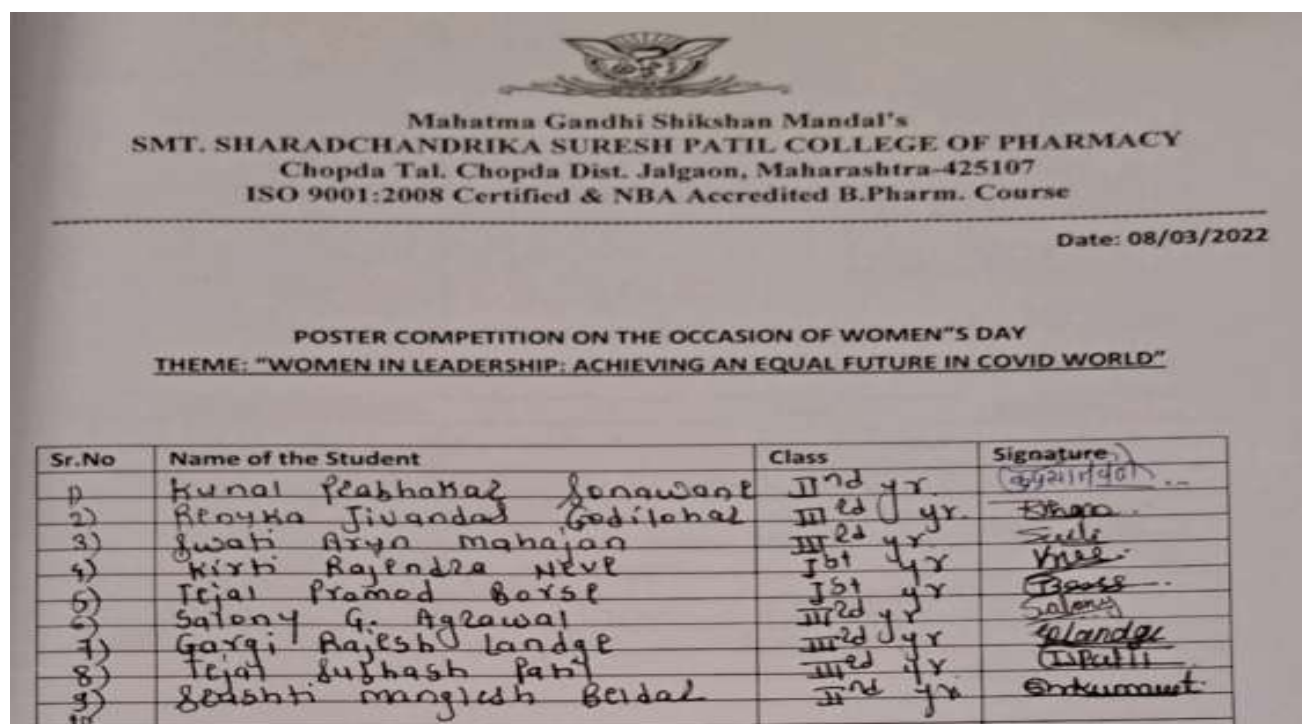 Mahatma Gandhi Shikshan Mandal's
SMT. SHARADCHANDRIKA SURESH PATIL COLLEGE OF PHARMACY
Chopda Tal. Chopda Dist. Jalgaon, Maharashtra-425107
ISO 9001:2008 Certified & NBA Accredited B.Pharm. Course
Date: 08/03/2022
POSTER COMPETITION ON THE OCCASION OF WOMEN"S DAY
THEME: "WOMEN IN LEADERSHIP: ACHIEVING AN EQUAL FUTURE IN COVID WORLD"
Sr.No Name of the Student Class Signature
1) Kunal Prabhakar Sonawane IInd yr.
2) Renuka Jivandas IIIrd yr.
3) Swati Arun mahajan IIIrd yr
4) Kirti Rajendra Neve Ist yr
5) Tejal Pramod Borse Ist yr
6) Salony G. Agrawal IIIrd yr Salony
7) Gargi Rajesh Landge IIIrd yr Landge
8) Tejal Subhash Patil IIIrd yr
9) manglesh IInd yr.